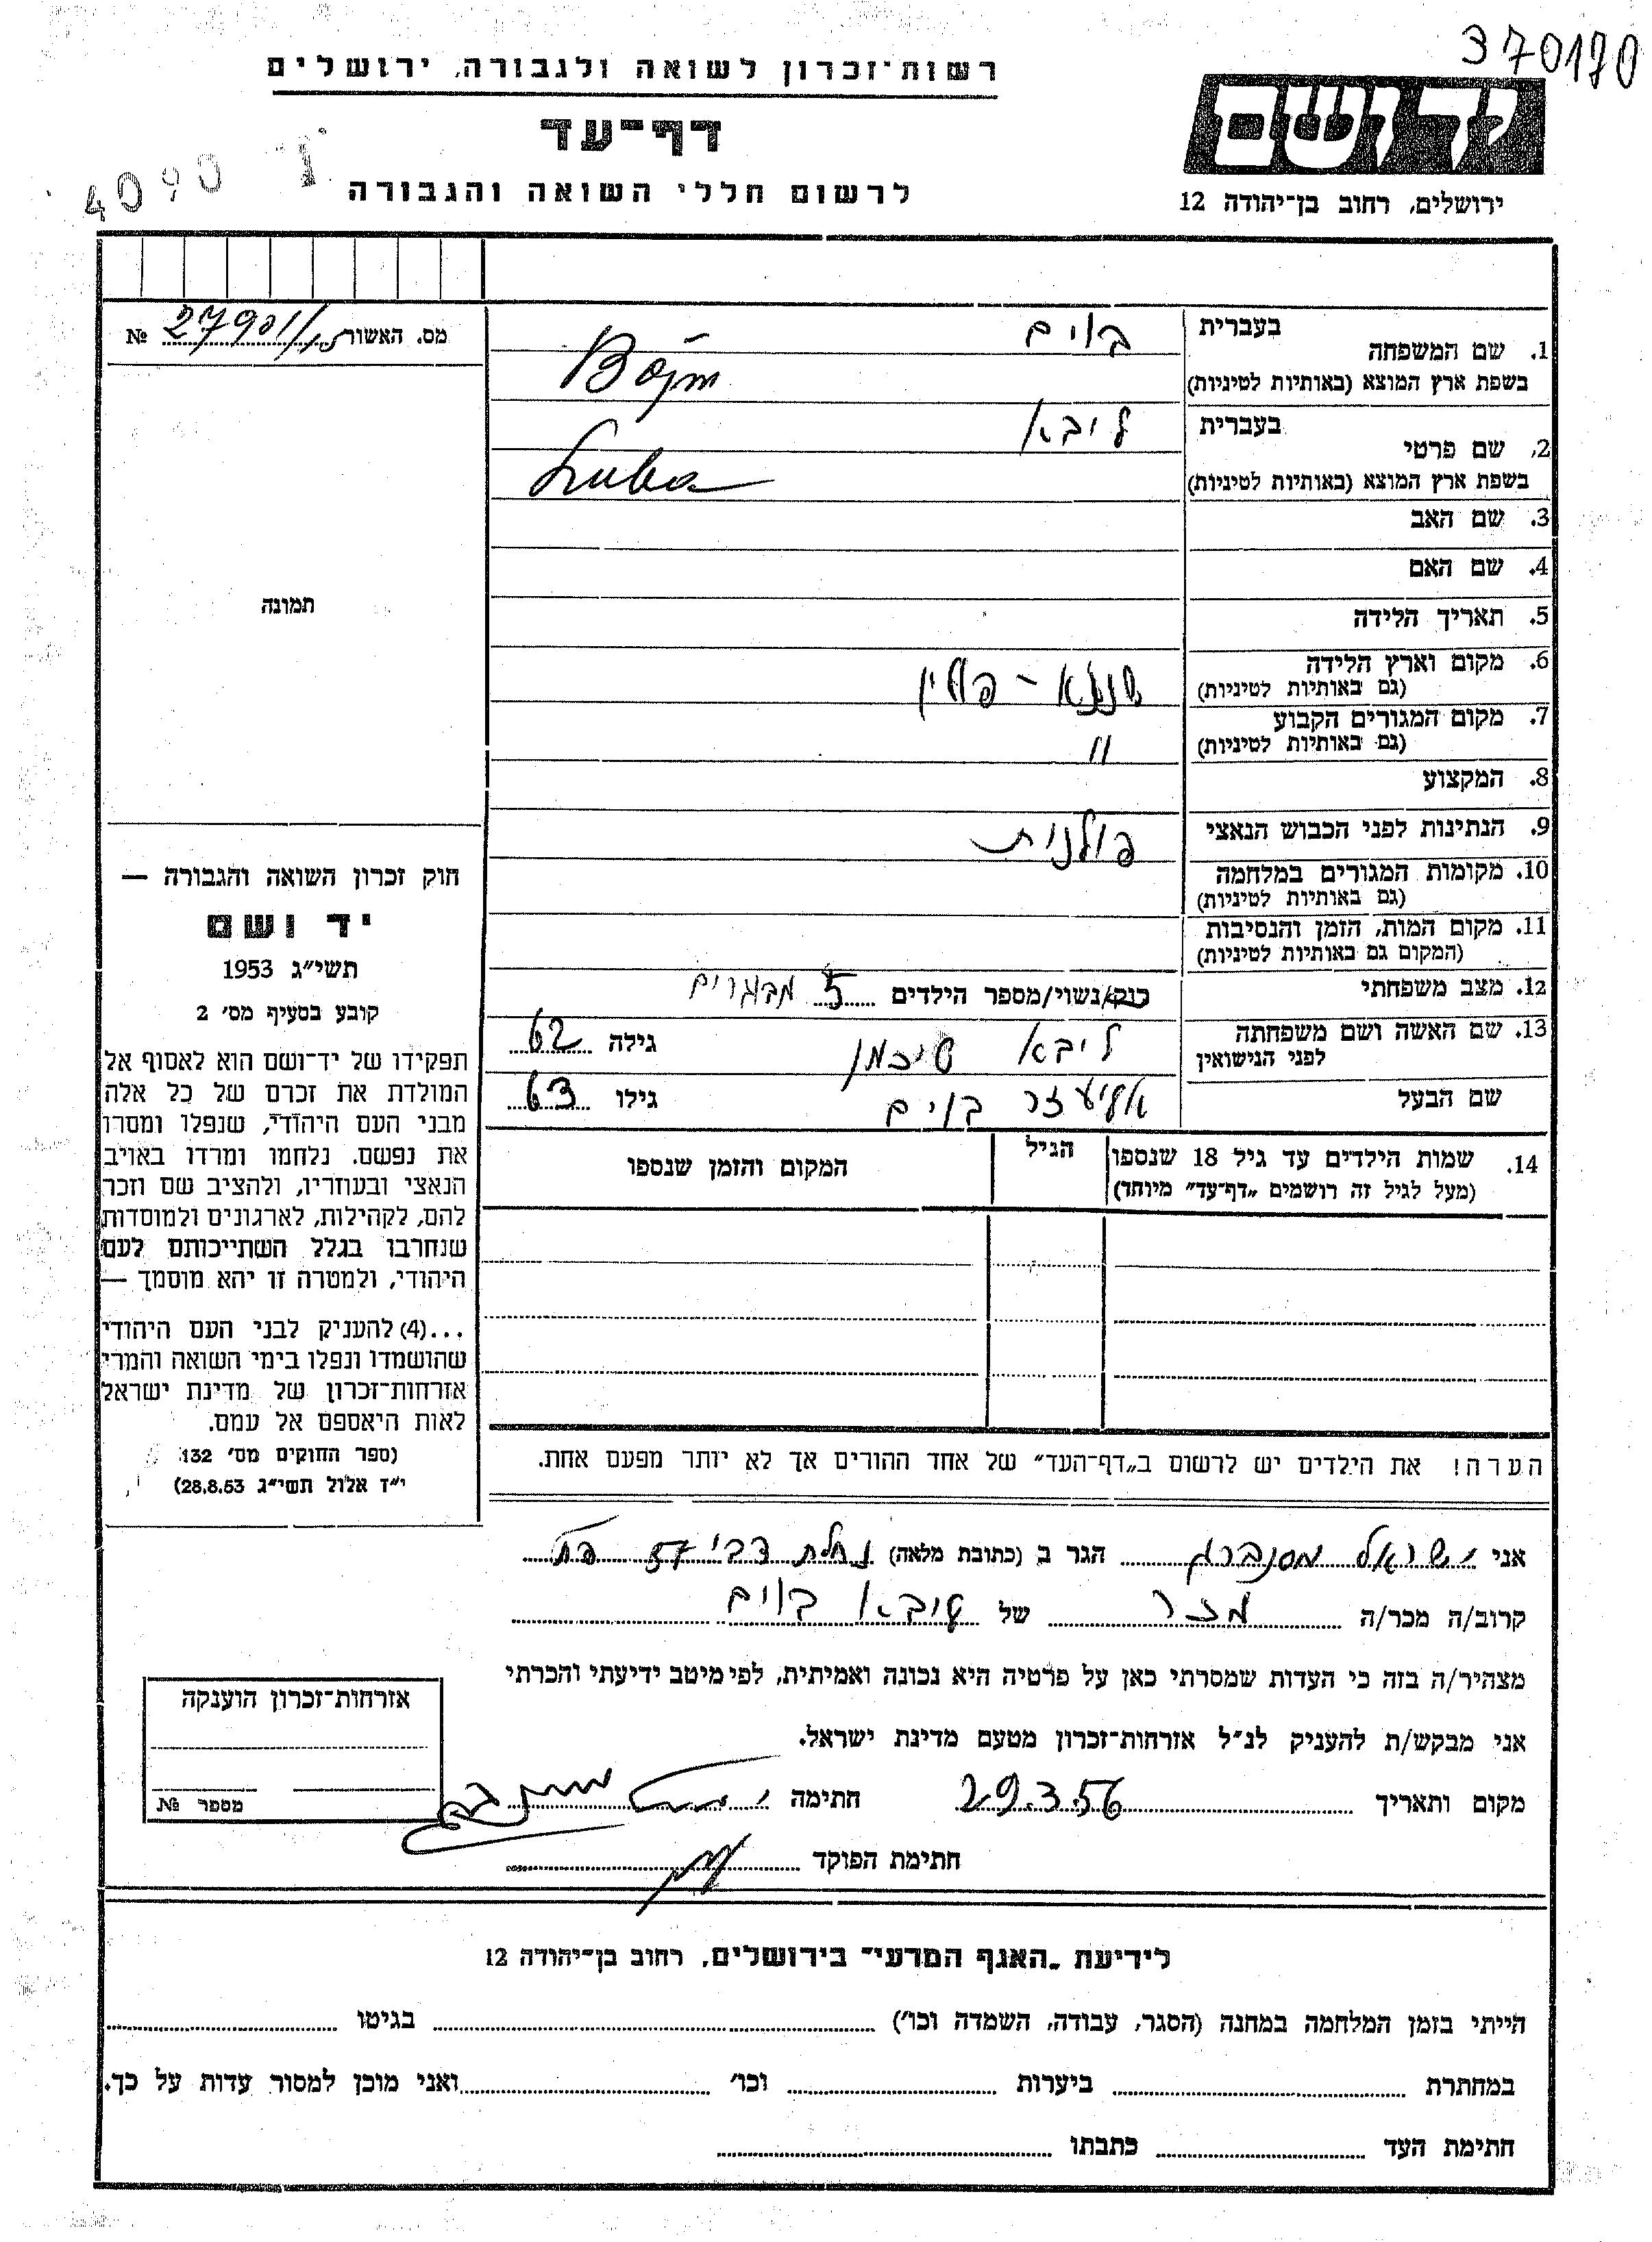 370170
רשות־זכרון לשואה ולגבורה, ירושלים
דף־עד
לרשום חללי השואה והגבורה
4090
יד ושם
ירושלים, רחוב בן־יהודה 12
מס. האשור 27901/15 №
תמונה
1. שם המשפחה בעברית בוים
בשפת ארץ המוצא (באותיות לטיניות) Bojm
2. שם פרטי בעברית ליבא
בשפת ארץ המוצא (באותיות לטיניות) Luba
3. שם האב
4. שם האם
5. תאריך הלידה
6. מקום וארץ הלידה - פולין
(גם באותיות לטיניות)
7. מקום המגורים הקבוע "
(גם באותיות לטיניות)
8. המקצוע
9. הנתינות לפני הכבוש הנאצי פולנית
10. מקומות המגורים במלחמה
(גם באותיות לטיניות)
11. מקום המות, הזמן והנסיבות
(המקום גם באותיות לטיניות)
12. מצב משפחתי רווק/נשוי/מספר הילדים 5 מבוגרים
13. שם האשה ושם משפחתה ליבא גילה 62
לפני הנישואין
שם הבעל אליעזר בוים גילו 63
14. שמות הילדים עד גיל 18 שנספו הגיל המקום והזמן שנספו
(מעל לגיל זה רושמים „דף־עד” מיוחד)
חוק זכרון השואה והגבורה —
יד ושם
תשי״ג 1953
קובע בסעיף מס׳ 2
תפקידו של יד־ושם הוא לאסוף אל
המולדת את זכרם של כל אלה
מבני העם היהודי, שנפלו ומסרו
את נפשם. נלחמו ומרדו באויב
הנאצי ובעוזריו, ולהציב שם וזכר
להם, לקהילות, לארגונים ולמוסדות
שנחרבו בגלל השתייכותם לעם
היהודי, ולמטרה זו יהא מוסמך —
...(4) להעניק לבני העם היהודי
שהושמדו ונפלו בימי השואה והמרי
אזרחות־זכרון של מדינת ישראל
לאות היאספם אל עמם.
(ספר החוקים מס׳ 132
י״ז אלול תשי״ג 28.8.53)
הערה! את הילדים יש לרשום ב„דף־העד” של אחד ההורים אך לא יותר מפעם אחת.
אני ישראל מסנברג הגר ב (כתובת מלאה) נחלת צבי 57 פת
קרוב/ה מכר/ה מכר של בוים
מצהיר/ה בזה כי העדות שמסרתי כאן על פרטיה היא נכונה ואמיתית, לפי מיטב ידיעתי והכרתי
אני מבקש/ת להעניק לנ״ל אזרחות־זכרון מטעם מדינת ישראל.
מקום ותאריך 29.3.56 חתימה
חתימת הפוקד
אזרחות־זכרון הוענקה
מספר №
לידיעת „האגף המדעי” בירושלים, רחוב בן־יהודה 12
הייתי בזמן המלחמה במחנה (הסגר, עבודה, השמדה וכו׳) בגיטו
במחתרת ביערות וכו׳ ואני מוכן למסור עדות על כך.
חתימת העד כתבתו